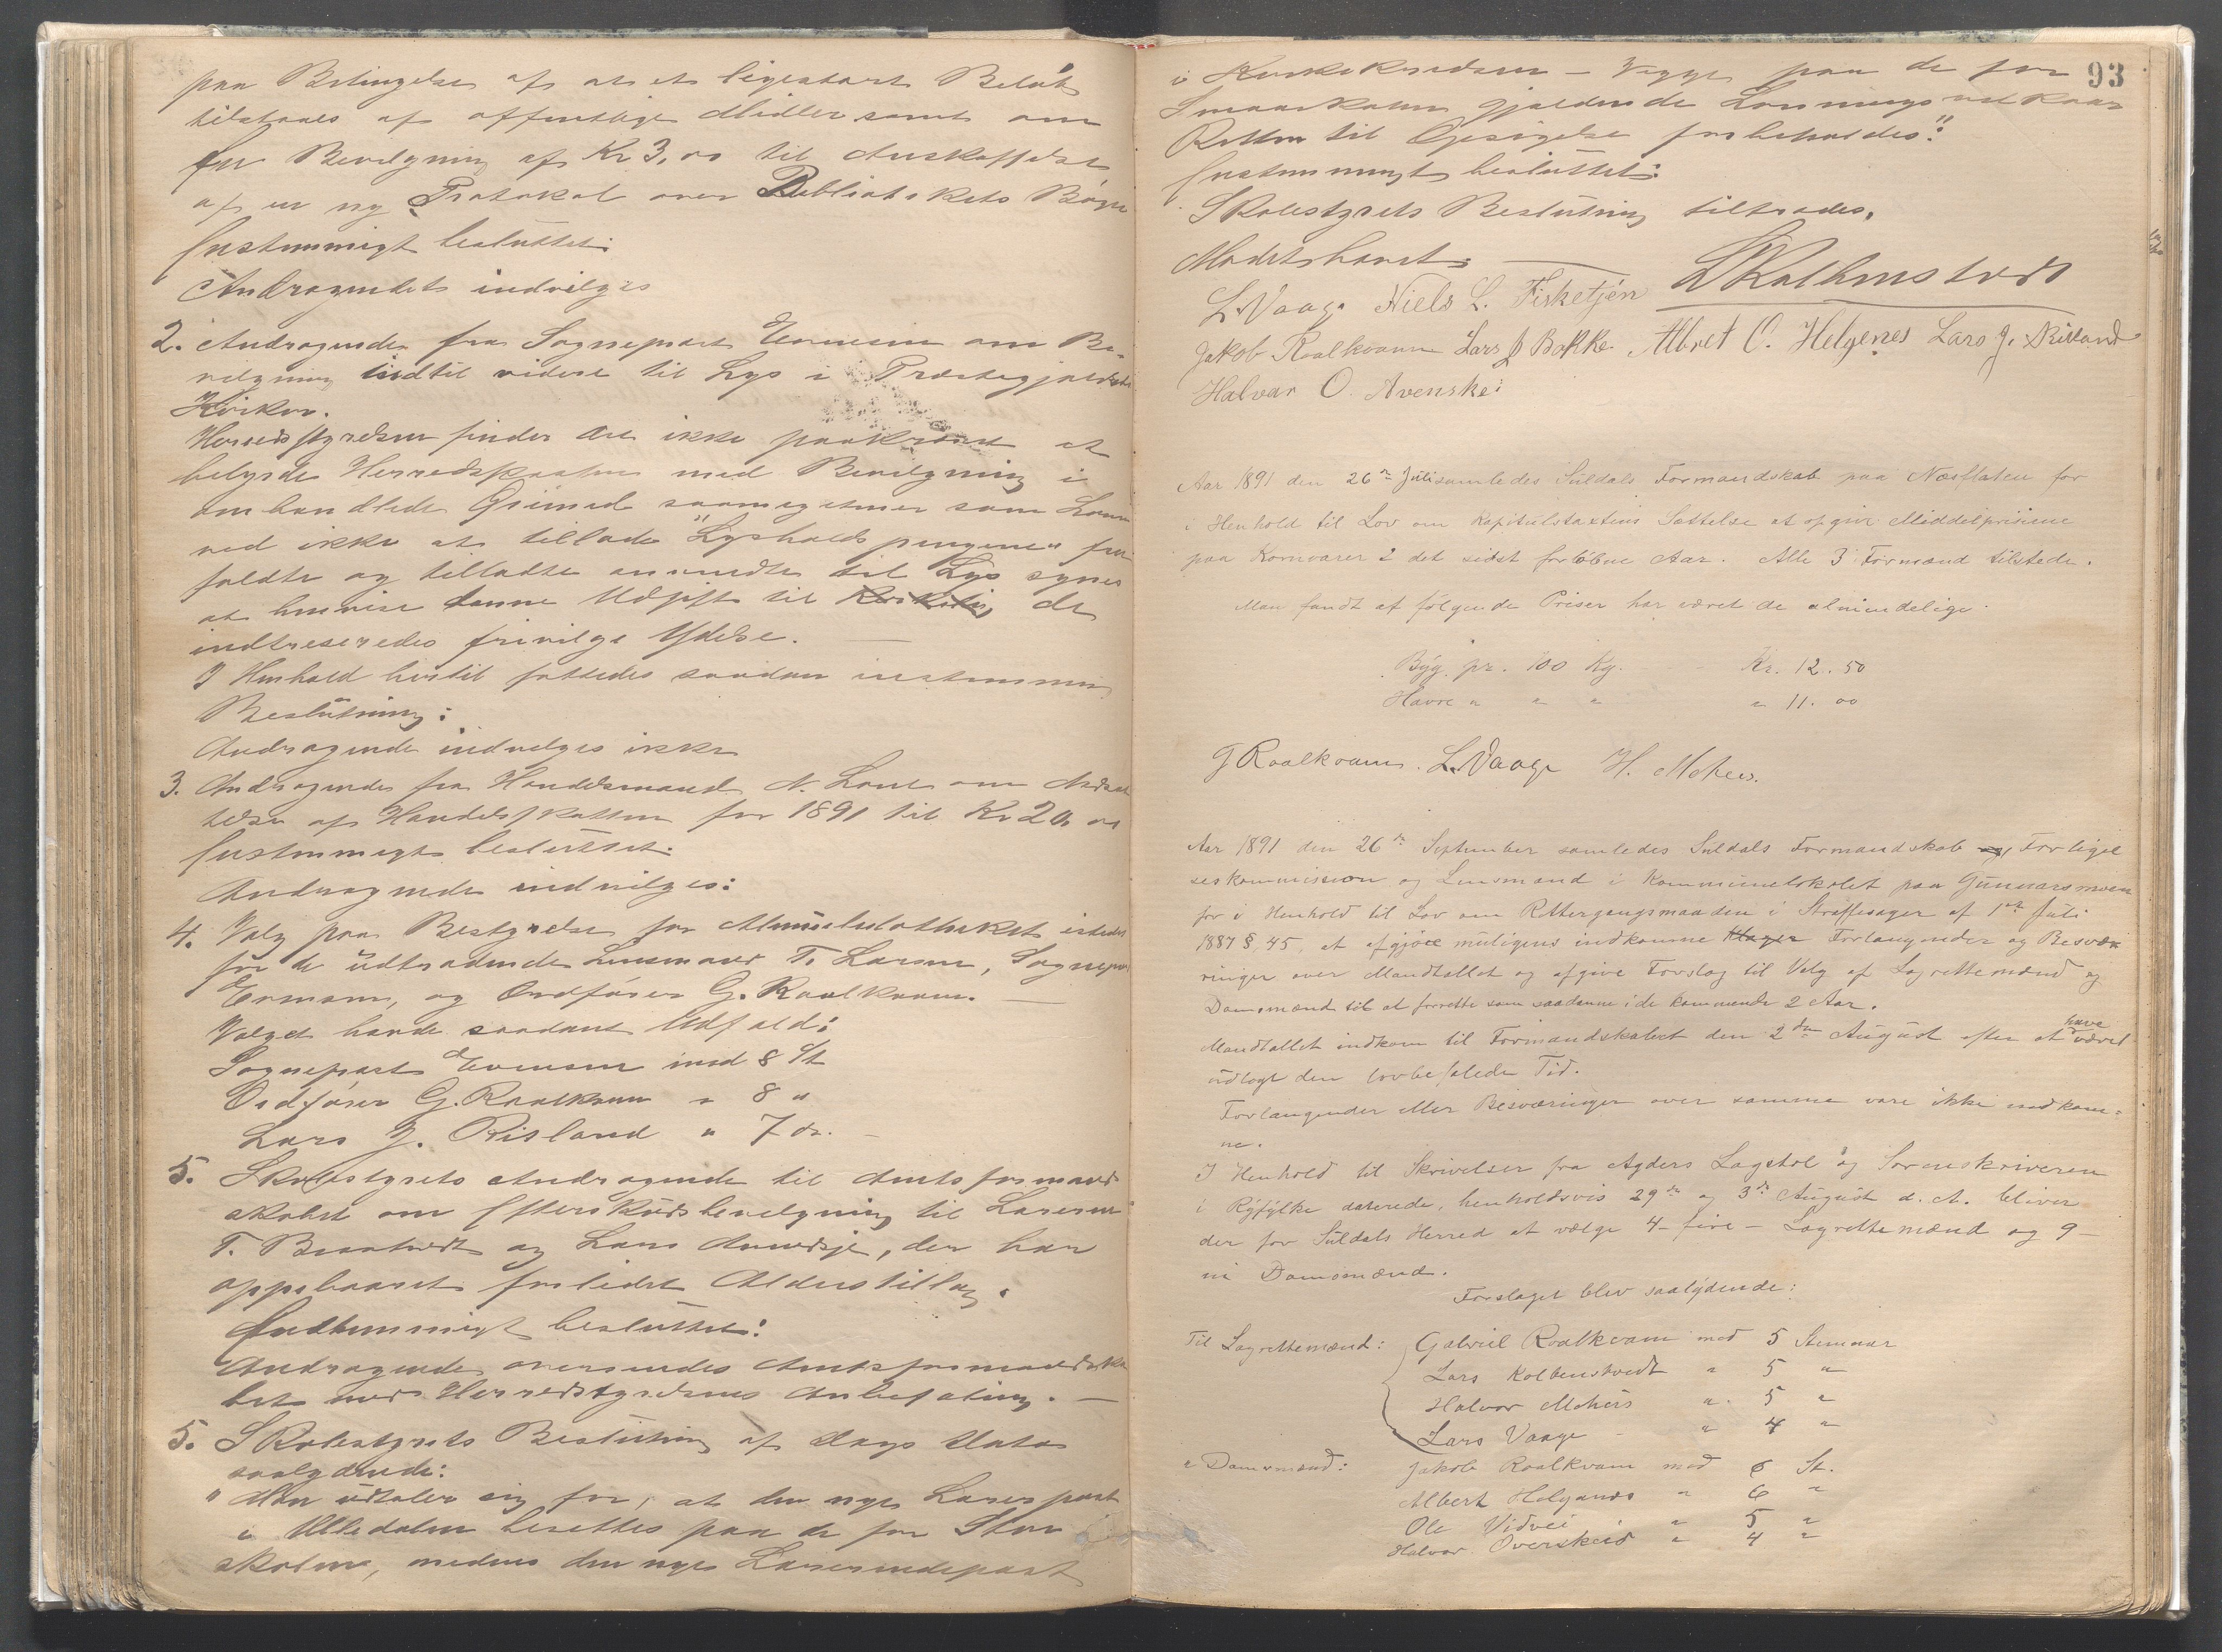 paa Betingelse af at et ligestort Beløb
tilstaaes af offentlige Midler samt om
en Bevilgning af Kr 3,00 til Anskaffelse
af en ny Protokol over Bibliothekets Bøger
Enstemmigt besluttet:
Andragendet indvilges
2. Andragende fra Sogneprest Evensen om Be-
vilgning indtil videre til Lys i Præstegjeldets
Kirker.
Herredsstyrelsen finder det ikke paakrævet at
belyrde Herredskassen med Bevilgning i
omhandlede Øiemed saameget mer som
ved ikke at tillade "Lysholdspengene"
faldte og tilladte anvendte til Lys synes
at henvise denne Udgift til de
indtreseredes frivilge Ydelse.
I Henhold hertil fattedes saadan enstemmig
Beslutning:
Andragende indvilges ikke
3. Andragende fra Handelsmand N. Lone om Nedsæt
telse af Handelsskatten for 1891 til Kr 20,00
Enstemmigt besluttet:
Andragende indvilges:
4. Valg paa Bestyrelse for Almuebibliotheket istedet
for de udtrædende Lensmand T. Larsen, Sognepr
Evensen, og Ordfører G. Raalkvam.
Valget havde saadant Udfald:
Sogneprest Evensen med 8 St
Ordfører G. Raalkvam " 8 "
Lars J. Risland " 7 "
5. Skolestyrets Andragende til Amtsformand
skabet om Efterskudsbevilgning til Læreren
T. Bratvedt og Lars, der har
oppebaaret forlidet Alderstillæg.
Endstemmigt besluttet:
Andragende oversendes Amtsformandska
bet med Herredstyrelsens Anbefaling.
5. Skolestyrets Beslutning af Dags Dato
saalydende:
" Man udtaler sig for, at den nye Lærerpost
i Ulledalen besettes paa de for Stor
skolen, medens den nye Lærerindepost
93
i Kirkekredsen - Vegge, paa de for
Smaaskolen gjældende Lønningsvilkaar
Retten til Opsigelse forbeholdes."
Enstemmigt besluttet:
Skolestyrets Beslutning tiltrædes.
Mødet hævet.
L Kolbenstvedt
L. Vaage Niels L. Fisketjøn
Jakob Raalkvam Lars J Bakke Albret O. Helgenes Lars J. Risland
Halvar O.
Aar 1891 den 26de Juli samledes Suldals Formandskab paa Næsflaten for
i Henhold til Lov om Kapitelstaxtens Sættelse at opgive Middelpriserne
paa Kornvarer i det sidst forløbne Aar. Alle 3 Formænd tilstede.
Man fandt at følgende Priser har været de almindelige.
Byg pr. 100 Kg. Kr. 12.50
Havre " " " " 11.00
G Raalkvam. L. Vaage H. Mehus.
Aar 1891 den 26de September samledes Suldals Formandskab og Forligel
seskommission og Lensmand i Kommunelokalet paa Gunnarsmoen
for i Henhold til Lov om Rettergangsmaaden i Straffesager af 1ste Juli
1887 §, 45, at afgjøre muligens indkomne Klager Forlangender og Besvæ
ringer over Mandtallet og afgive Forslag til Valg af Lagrettemænd og
Domsmænd til at forrette som saadanne i de kommende 2 Aar.
Mandtallet indkom til Formandskabet den 2den August efter at have været
udlagt den lovbefalede Tid.
Forlangender eller Besværinger over samme vare ikke indkom=
ne.
I Henhold til Skrivelser fra Agders Lagstol og Sorenskriveren
i Ryfylke daterede, henholdsvis 29de og 3de August d. A. bliver
der for Suldals Herred at vælge 4 - fire - Lagrettemænd og 9 -
ni Domsmænd.
Forslaget blev saalydende:
Til Lagrettemænd: Gabriel Raalkvam med 5 Stemmer
Lars Kolbenstvedt " 5 "
Halvor Mehus " 5 "
Lars Vaage " 4 "
" Domsmænd: Jakob Raalkvam med 6 St.
Albert Helgenes " 6 "
Ole Vidvei " 5 "
Halvor Overskeid " 4 "